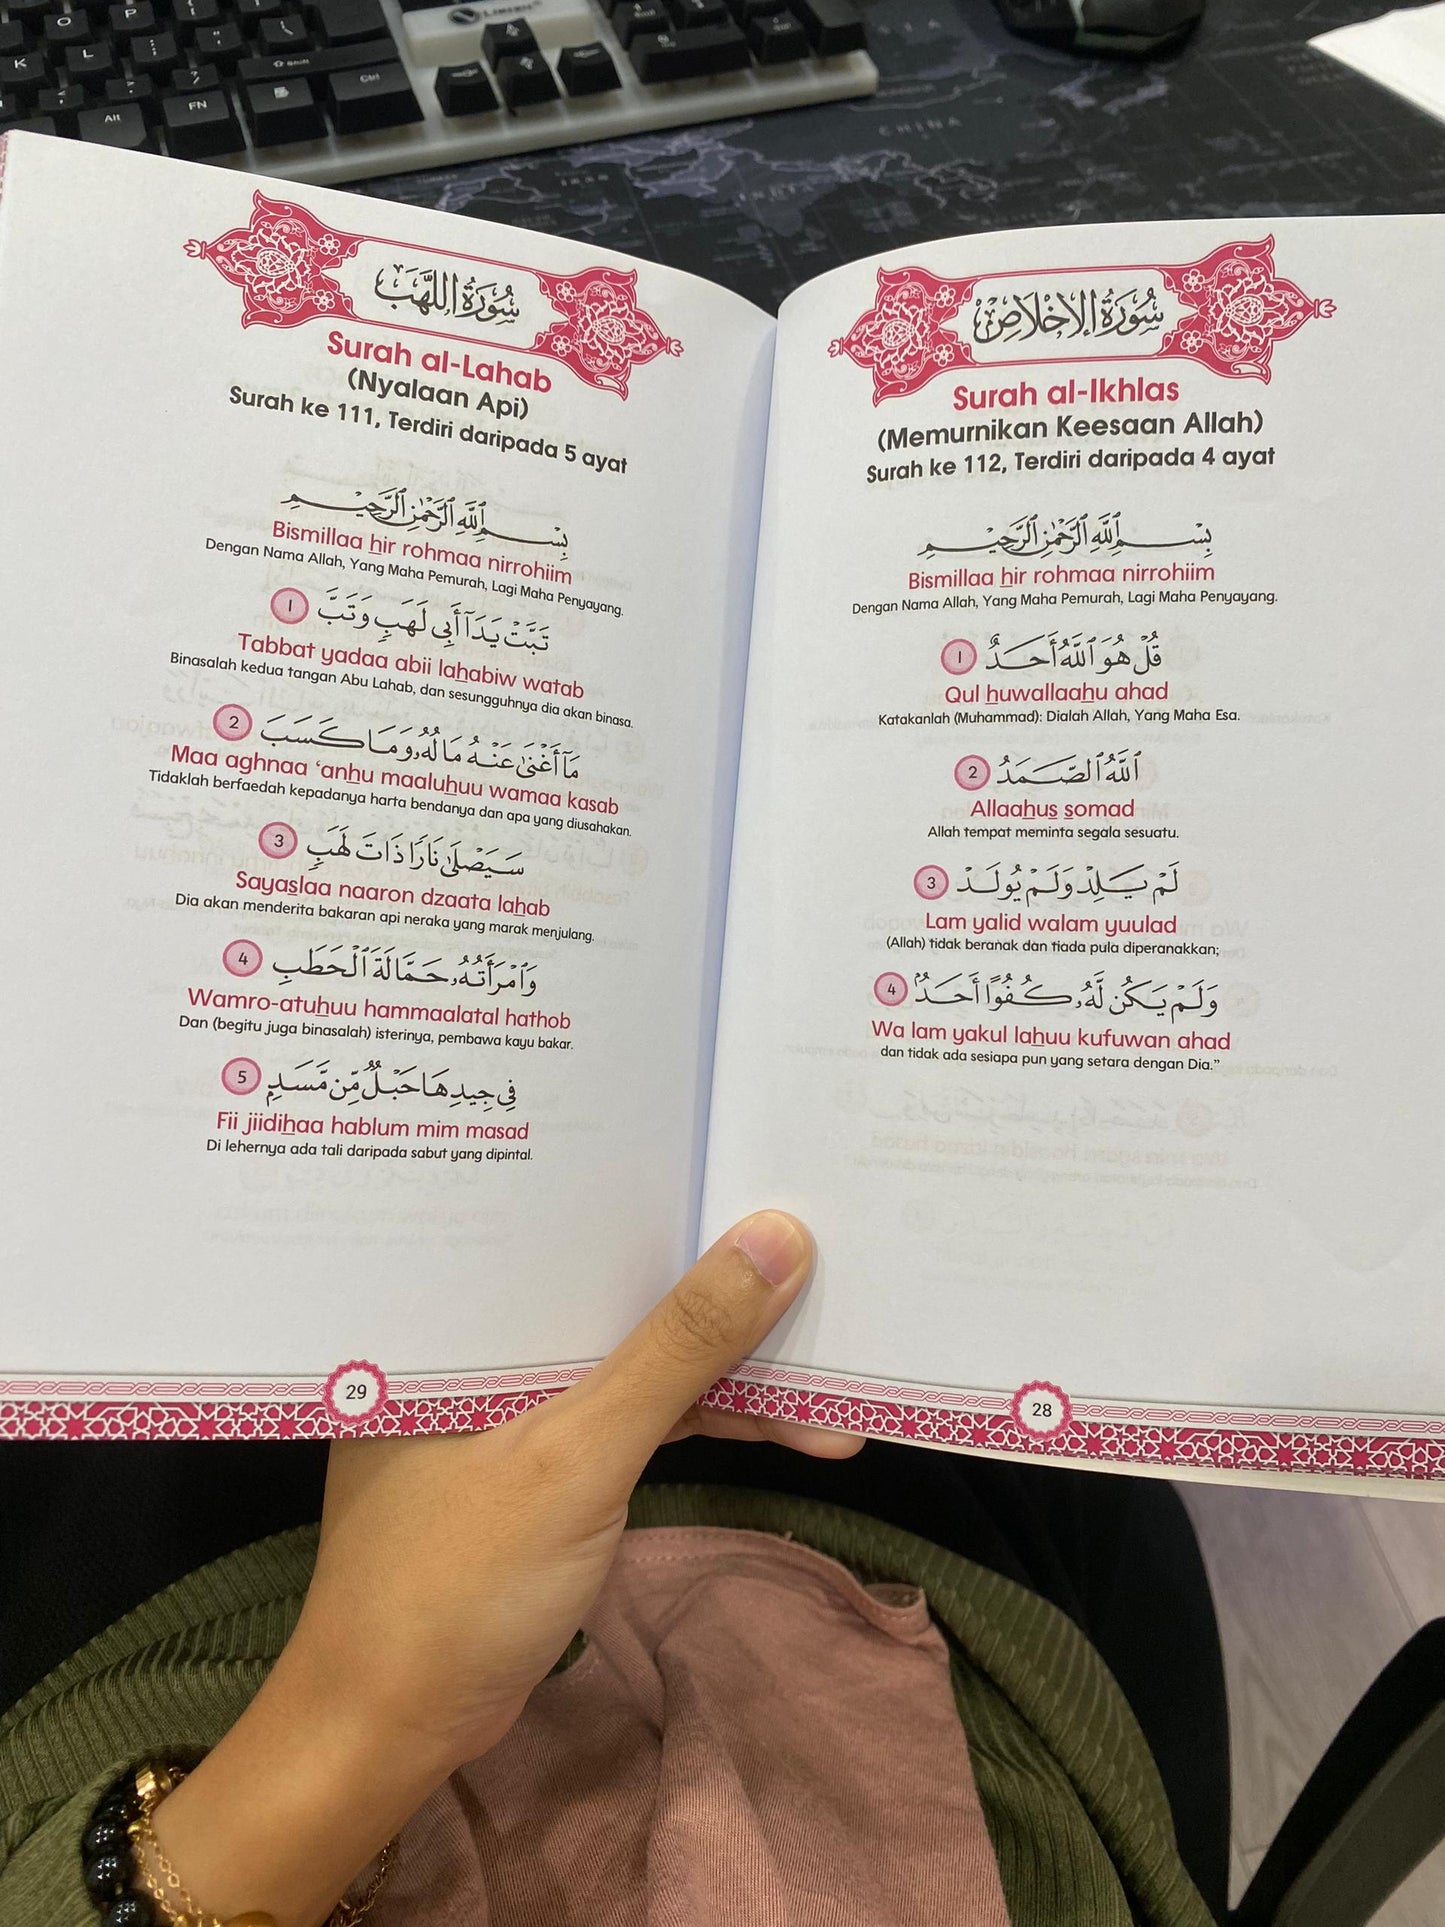 سُورَةُ الإِخْلَاصِ
Surah al-Ikhlas
(Memurnikan Keesaan Allah)
Surah ke 112, Terdiri daripada 4 ayat
بِسْمِ ٱللَّهِ ٱلرَّحْمَٰنِ ٱلرَّحِيمِ
Bismillaa hir rohmaa nirrohiim
Dengan Nama Allah, Yang Maha Pemurah, Lagi Maha Penyayang.
قُلْ هُوَ ٱللَّهُ أَحَدٌ 1
Qul huwallaahu ahad
Katakanlah (Muhammad): Dialah Allah, Yang Maha Esa.
ٱللَّهُ ٱلصَّمَدُ 2
Allaahus somad
Allah tempat meminta segala sesuatu.
لَمْ يَلِدْ وَلَمْ يُولَدْ 3
Lam yalid walam yuulad
(Allah) tidak beranak dan tiada pula diperanakkan;
وَلَمْ يَكُن لَّهُۥ كُفُوًا أَحَدٌۢ 4
Wa lam yakul lahuu kufuwan ahad
dan tidak ada sesiapa pun yang setara dengan Dia.”
28
سُورَةُ اللَّهَبِ
Surah al-Lahab
(Nyalaan Api)
Surah ke 111, Terdiri daripada 5 ayat
بِسْمِ ٱللَّهِ ٱلرَّحْمَٰنِ ٱلرَّحِيمِ
Bismillaa hir rohmaa nirrohiim
Dengan Nama Allah, Yang Maha Pemurah, Lagi Maha Penyayang.
تَبَّتْ يَدَآ أَبِي لَهَبٍ وَتَبَّ 1
Tabbat yadaa abii lahabiw watab
Binasalah kedua tangan Abu Lahab, dan sesungguhnya dia akan binasa.
مَآ أَغْنَىٰ عَنْهُ مَالُهُۥ وَمَا كَسَبَ 2
Maa aghnaa ‘anhu maaluhuu wamaa kasab
Tidaklah berfaedah kepadanya harta bendanya dan apa yang diusahakan.
سَيَصْلَىٰ نَارًا ذَاتَ لَهَبٍ 3
Sayaslaa naaron dzaata lahab
Dia akan menderita bakaran api neraka yang marak menjulang.
وَٱمْرَأَتُهُۥ حَمَّالَةَ ٱلْحَطَبِ 4
Wamro-atuhuu hammaalatal hathob
Dan (begitu juga binasalah) isterinya, pembawa kayu bakar.
فِي جِيدِهَا حَبْلٌ مِّن مَّسَدٍۭ 5
Fii jiidihaa hablum mim masad
Di lehernya ada tali daripada sabut yang dipintal.
29
O
P
K
L
Shift
Alt
FN
Ctrl
CHINA